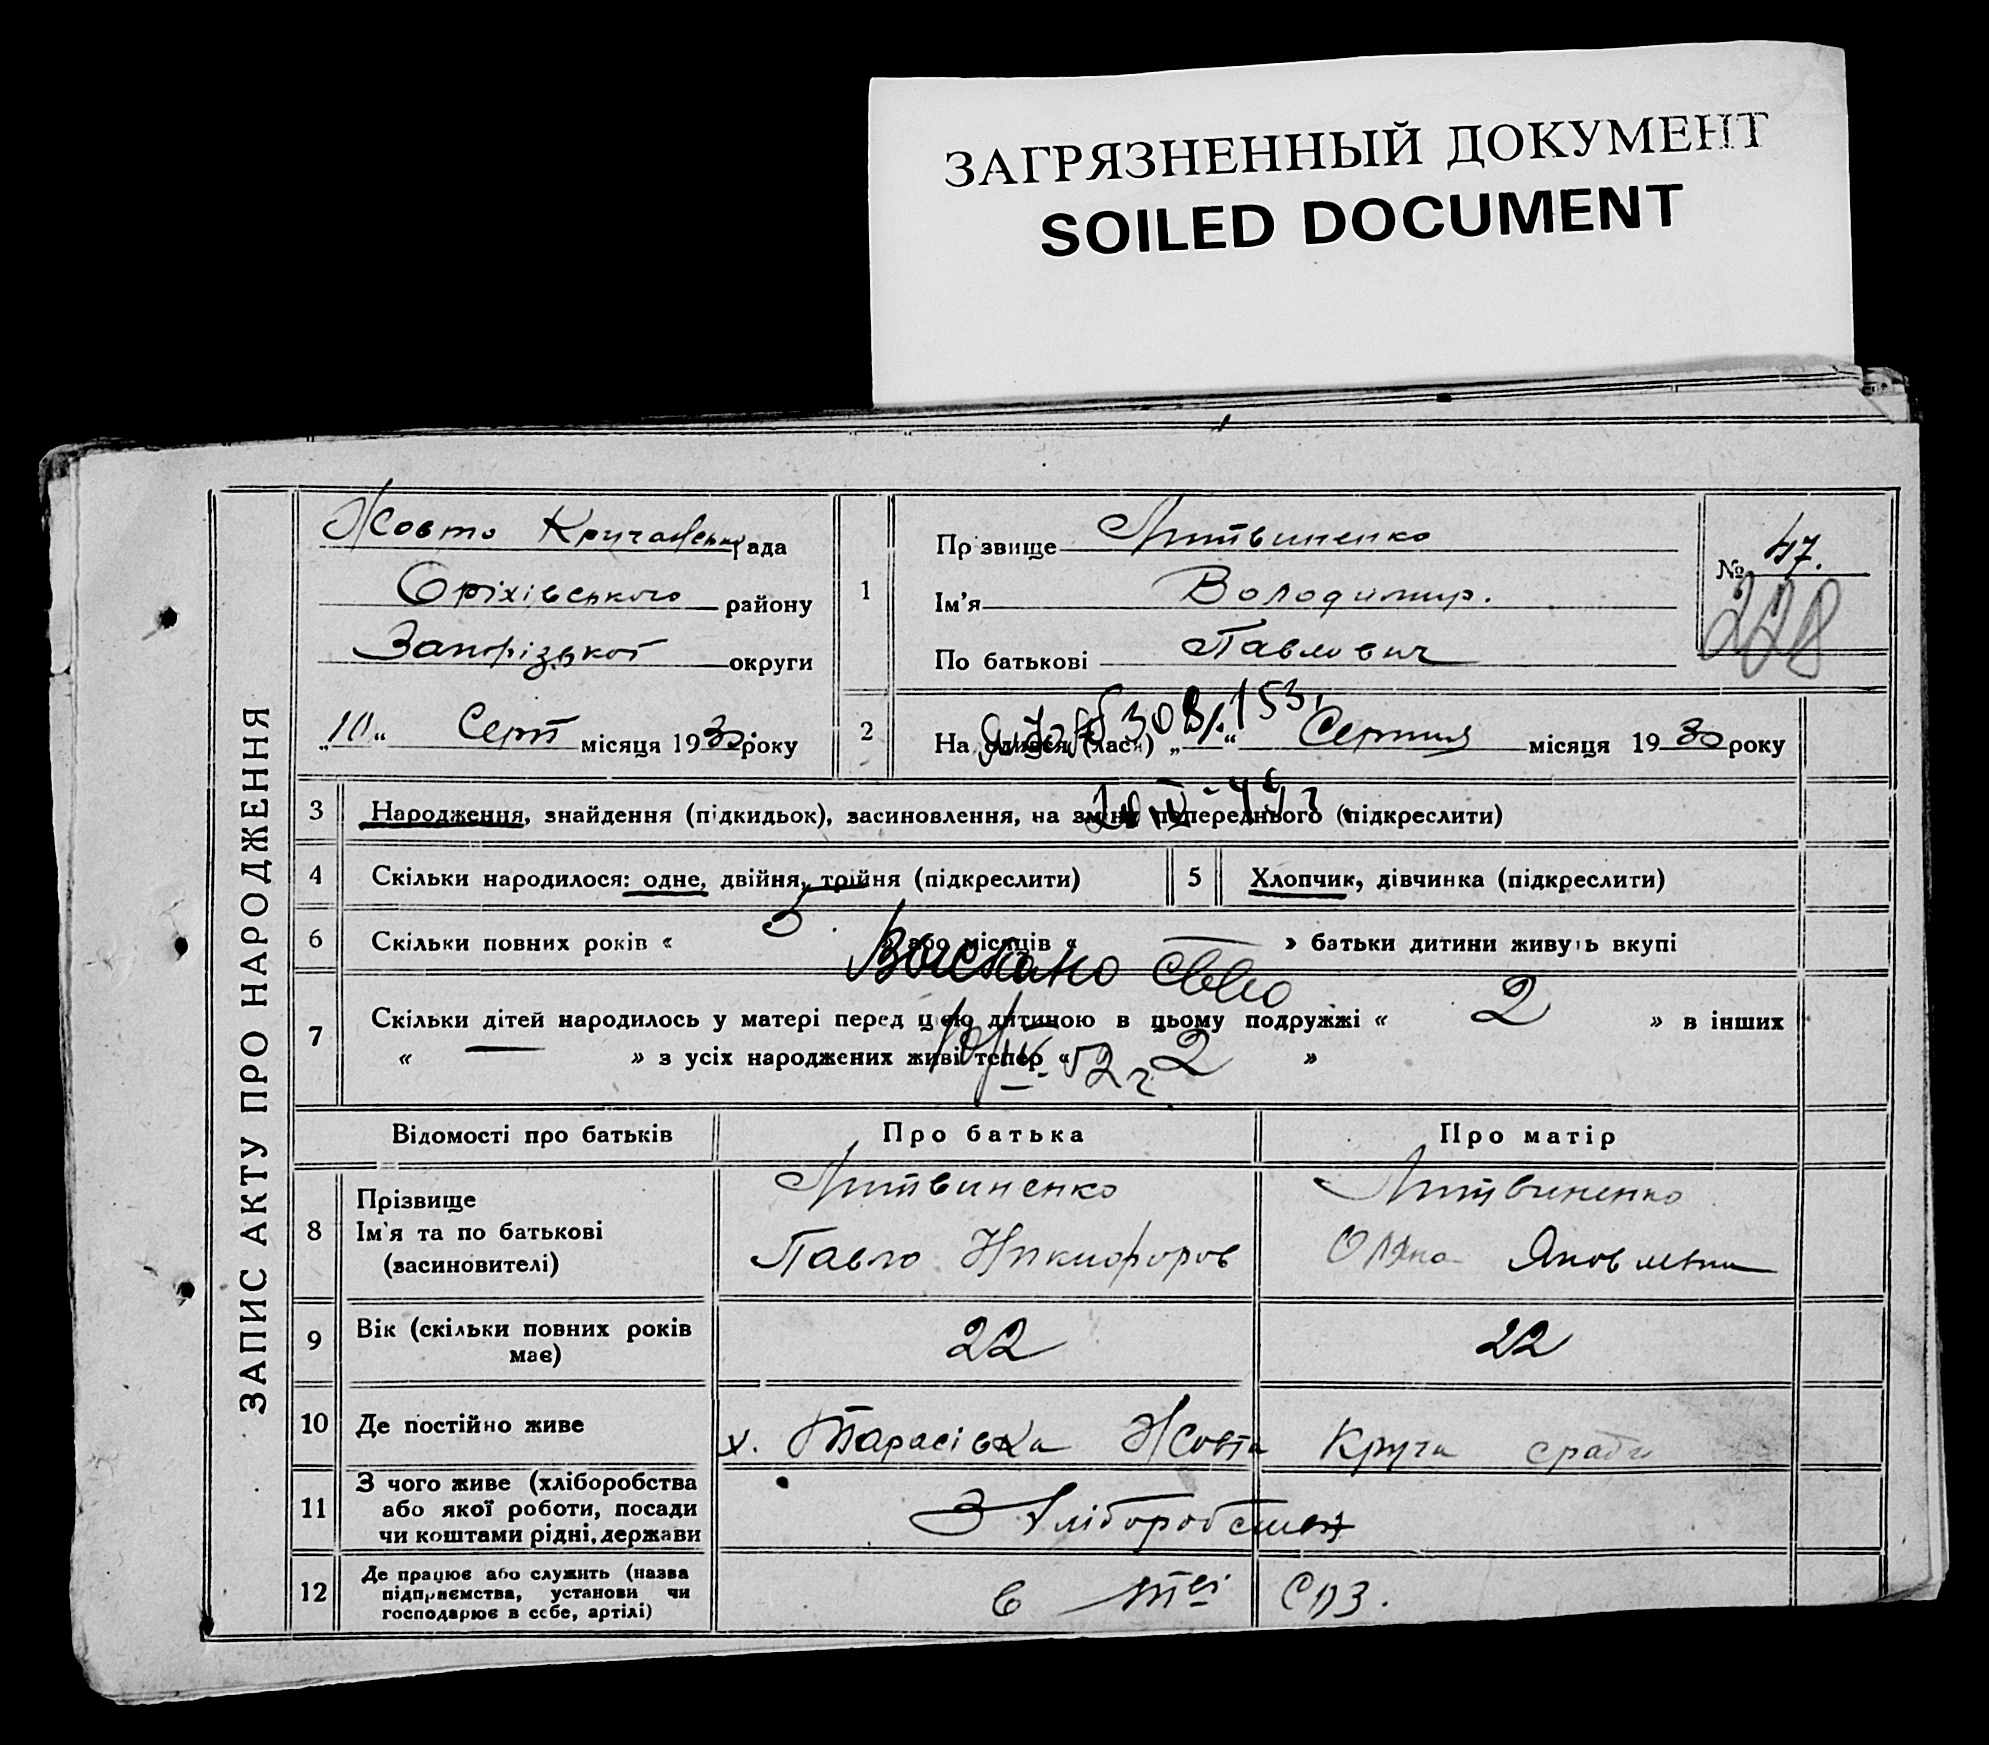 ЗАГРЯЗНЕННЫЙ ДОКУМЕНТ
SOILED DOCUMENT
ЗАПИС АКТУ ПРО НАРОДЖЕННЯ
Жовто рада
Оріхівського району
Запорізької округи
„10“ Серп місяця 1930 року
1
Прізвище Литвиненко
Ім'я Володимир.
По батькові Павлович
№ 47.
228
2
Народився (лась) „ “ Серпня місяця 1930 року
3 Народження, знайдення (підкидьок), засиновлення, на зміну попереднього (підкреслити)
4 Скільки народилося: одне, двійня, трійня (підкреслити)
5 Хлопчик, дівчинка (підкреслити)
6 Скільки повних років « 5 » або місяців « — » батьки дитини живуть вкупі
Выслано св-во
7 Скільки дітей народилось у матері перед цією дитиною в цьому подружжі « 2 » в інших
« — » з усіх народжених живі тепер « 2 »
52 г.
Відомості про батьків Про батька Про матір
8 Прізвище
Ім'я та по батькові
(засиновителі)
Литвиненко
Павло Никифоров
Литвиненко
Яковлевна
9 Вік (скільки повних років
має)
22 22
10 Де постійно живе
х. Тарасівка Жовта Круча
11 З чого живе (хліборобства
або якої роботи, посади
чи коштами рідні, держави
З хліборобства
12 Де працює або служить (назва
підприємства, установи чи
господарює в себе, артілі)
в СОЗ.